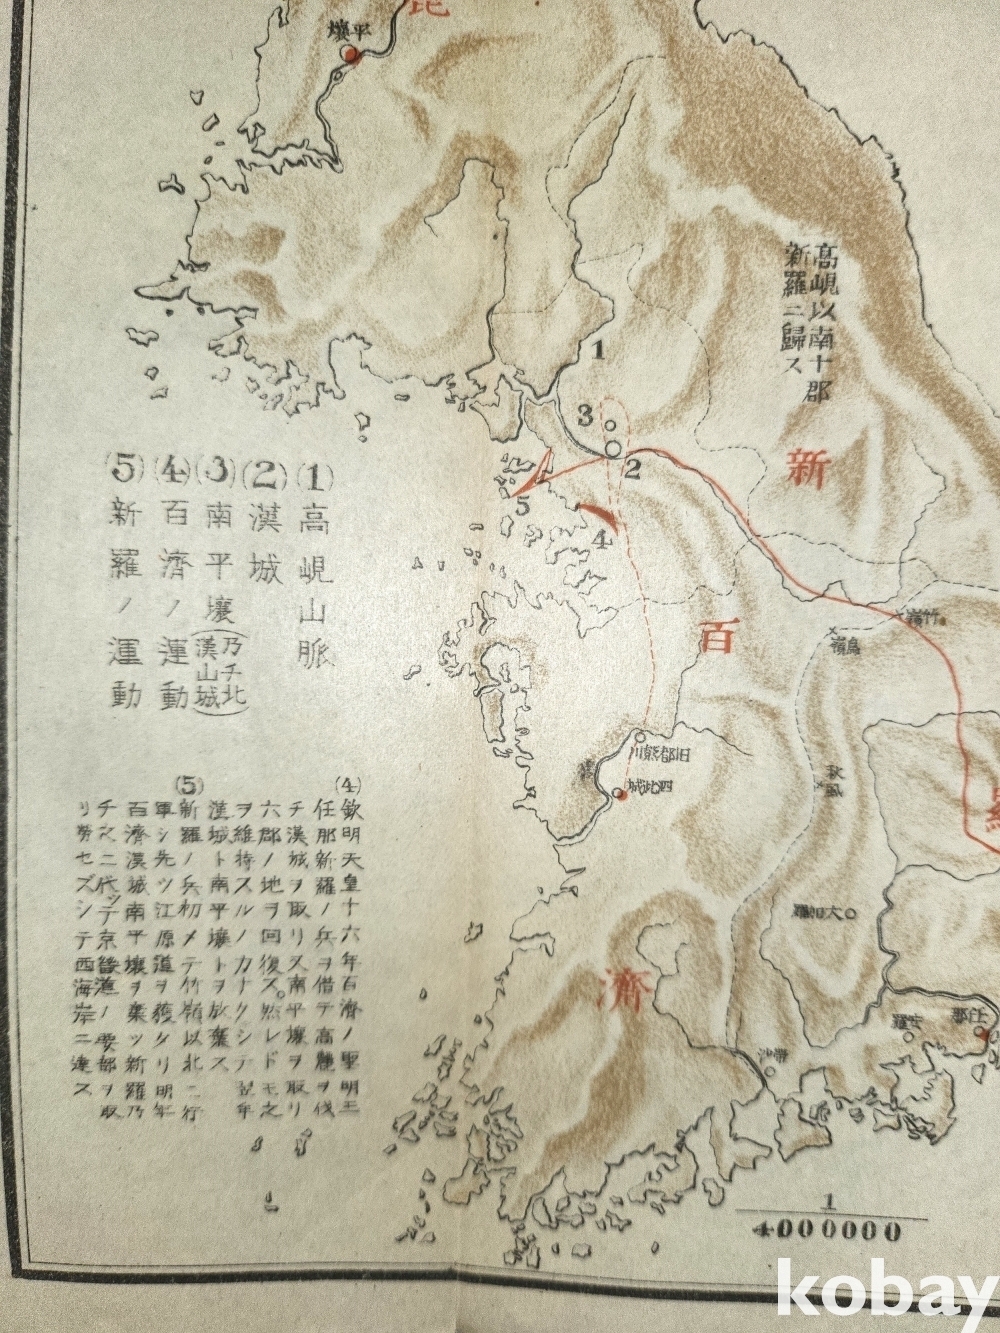 毘
平壤
高峴以南十郡
新羅ニ歸ス
1
3
2
5
4
新
百
濟
羅
竹嶺
鳥嶺
秋風
旧都熊川
四比城
大加羅
安羅
任那
帶沙
(1)高峴山脈
(2)漢城
(3)南平壤(乃チ北漢山城)
(4)百濟ノ運動
(5)新羅ノ運動
(4)欽明天皇十六年百濟ノ聖明王
任那新羅ノ兵ヲ借テ高麗ヲ伐
チ漢城ヲ取リ又南平壤ヲ取リ
六郡ノ地ヲ回復ス。然レドモ之
ヲ維持スルノ力ナクシテ翌年
漢城ト南平壤トヲ放棄ス
(5)新羅ノ兵初メテ竹嶺以北ニ行
軍シ先ツ江原道ヲ獲タリ明年
百濟漢城南平壤ヲ棄ツ新羅乃
チ之ニ代ッテ京畿道ノ要部ヲ取
リ勢セズシテ西海岸ニ達ス
1
4000000
kobay